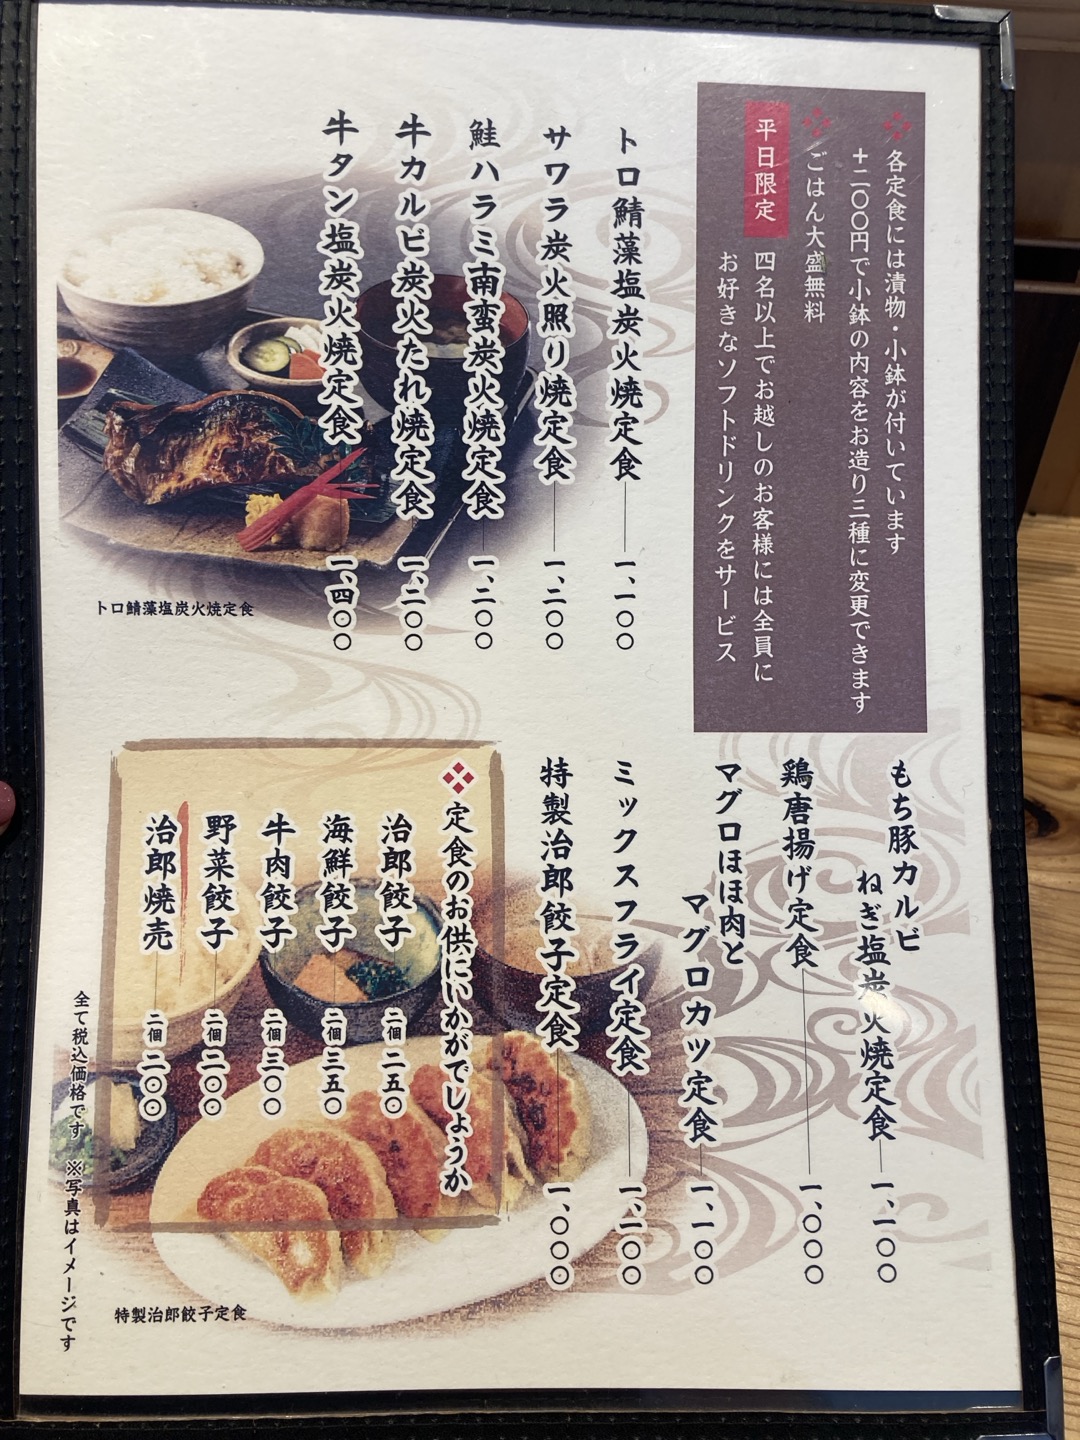 各定食には漬物・小鉢が付いています
十二〇〇円で小鉢の内容をお造り三種に変更できます
ごはん大盛無料
平日限定
四名以上でお越しのお客様には全員に
お好きなソフトドリンクをサービス
トロ鯖藻塩炭火焼定食 一、一〇〇
サワラ炭火照り焼定食 一、二〇〇
鮭ハラミ南蛮炭火焼定食 一、二〇〇
牛カルビ炭火たれ焼定食 一、二〇〇
牛タン塩炭火焼定食 一、四〇〇
トロ鯖藻塩炭火焼定食
もち豚カルビ
ねぎ塩炭火焼定食 一、一〇〇
鶏唐揚げ定食 一、〇〇〇
マグロほほ肉と
マグロカツ定食 一、一〇〇
ミックスフライ定食 一、二〇〇
特製治郎餃子定食 一、〇〇〇
定食のお供にいかがでしょうか
治郎餃子 二個 二五〇
海鮮餃子 二個 三五〇
牛肉餃子 二個 三〇〇
野菜餃子 二個 二〇〇
治郎焼売 二個 二〇〇
全て税込価格です ※写真はイメージです
特製治郎餃子定食